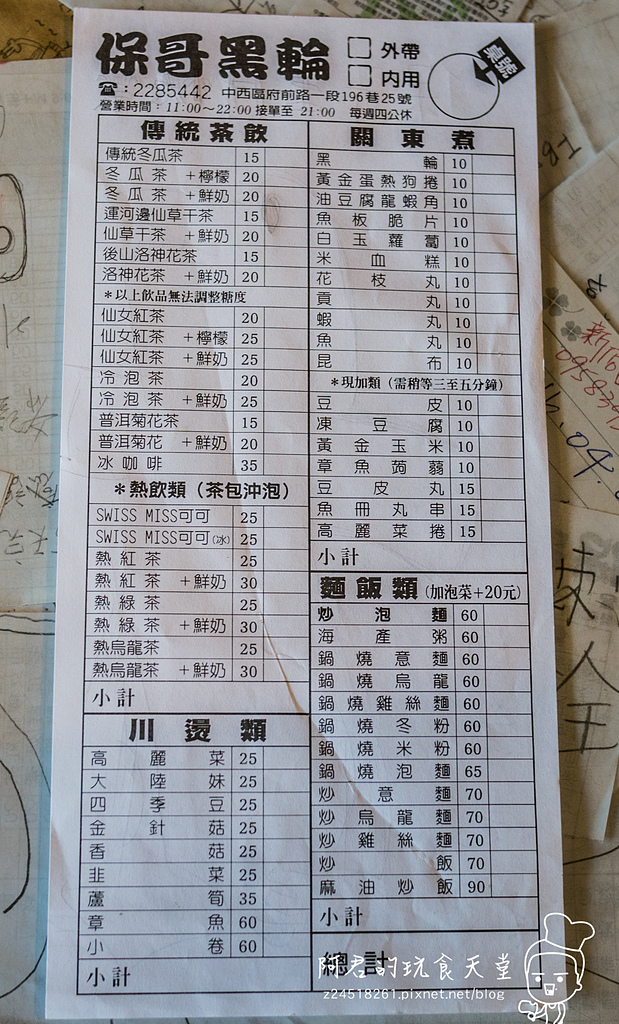 保哥黑輪
外帶
內用
桌號
☎:2285442 中西區府前路一段196巷25號
營業時間:11:00~22:00 接單至 21:00 每週四公休
傳統茶飲
傳統冬瓜茶 15
冬瓜茶 +檸檬 20
冬瓜茶 +鮮奶 20
運河邊仙草干茶 15
仙草干茶 +鮮奶 20
後山洛神花茶 15
洛神花茶 +鮮奶 20
*以上飲品無法調整糖度
仙女紅茶 20
仙女紅茶 +檸檬 25
仙女紅茶 +鮮奶 25
冷泡茶 20
冷泡茶 +鮮奶 25
普洱菊花茶 15
普洱菊花 +鮮奶 20
冰咖啡 35
*熱飲類(茶包沖泡)
SWISS MISS可可 25
SWISS MISS可可(冰) 25
熱紅茶 25
熱紅茶 +鮮奶 30
熱綠茶 25
熱綠茶 +鮮奶 30
熱烏龍茶 25
熱烏龍茶 +鮮奶 30
小計
川燙類
高麗菜 25
大陸妹 25
四季豆 25
金針菇 25
香菇 25
韭菜 25
蘆筍 35
章魚 60
小卷 60
小計
關東煮
黑輪 10
黃金蛋熱狗捲 10
油豆腐龍蝦角 10
魚板脆片 10
白玉蘿蔔 10
米血糕 10
花枝丸 10
貢丸 10
蝦丸 10
魚丸 10
昆布 10
*現加類(需稍等三至五分鐘)
豆皮 10
凍豆腐 10
黃金玉米 10
章魚蒟蒻 10
豆皮丸 15
魚冊丸串 15
高麗菜捲 15
小計
麵飯類(加泡菜+20元)
炒泡麵 60
海產粥 60
鍋燒意麵 60
鍋燒烏龍 60
鍋燒雞絲麵 60
鍋燒冬粉 60
鍋燒米粉 60
鍋燒泡麵 65
炒意麵 70
炒烏龍麵 70
炒雞絲麵 70
炒飯 70
麻油炒飯 90
小計
總計
阿君的玩食天堂
z24518261.pixnet.net/blog